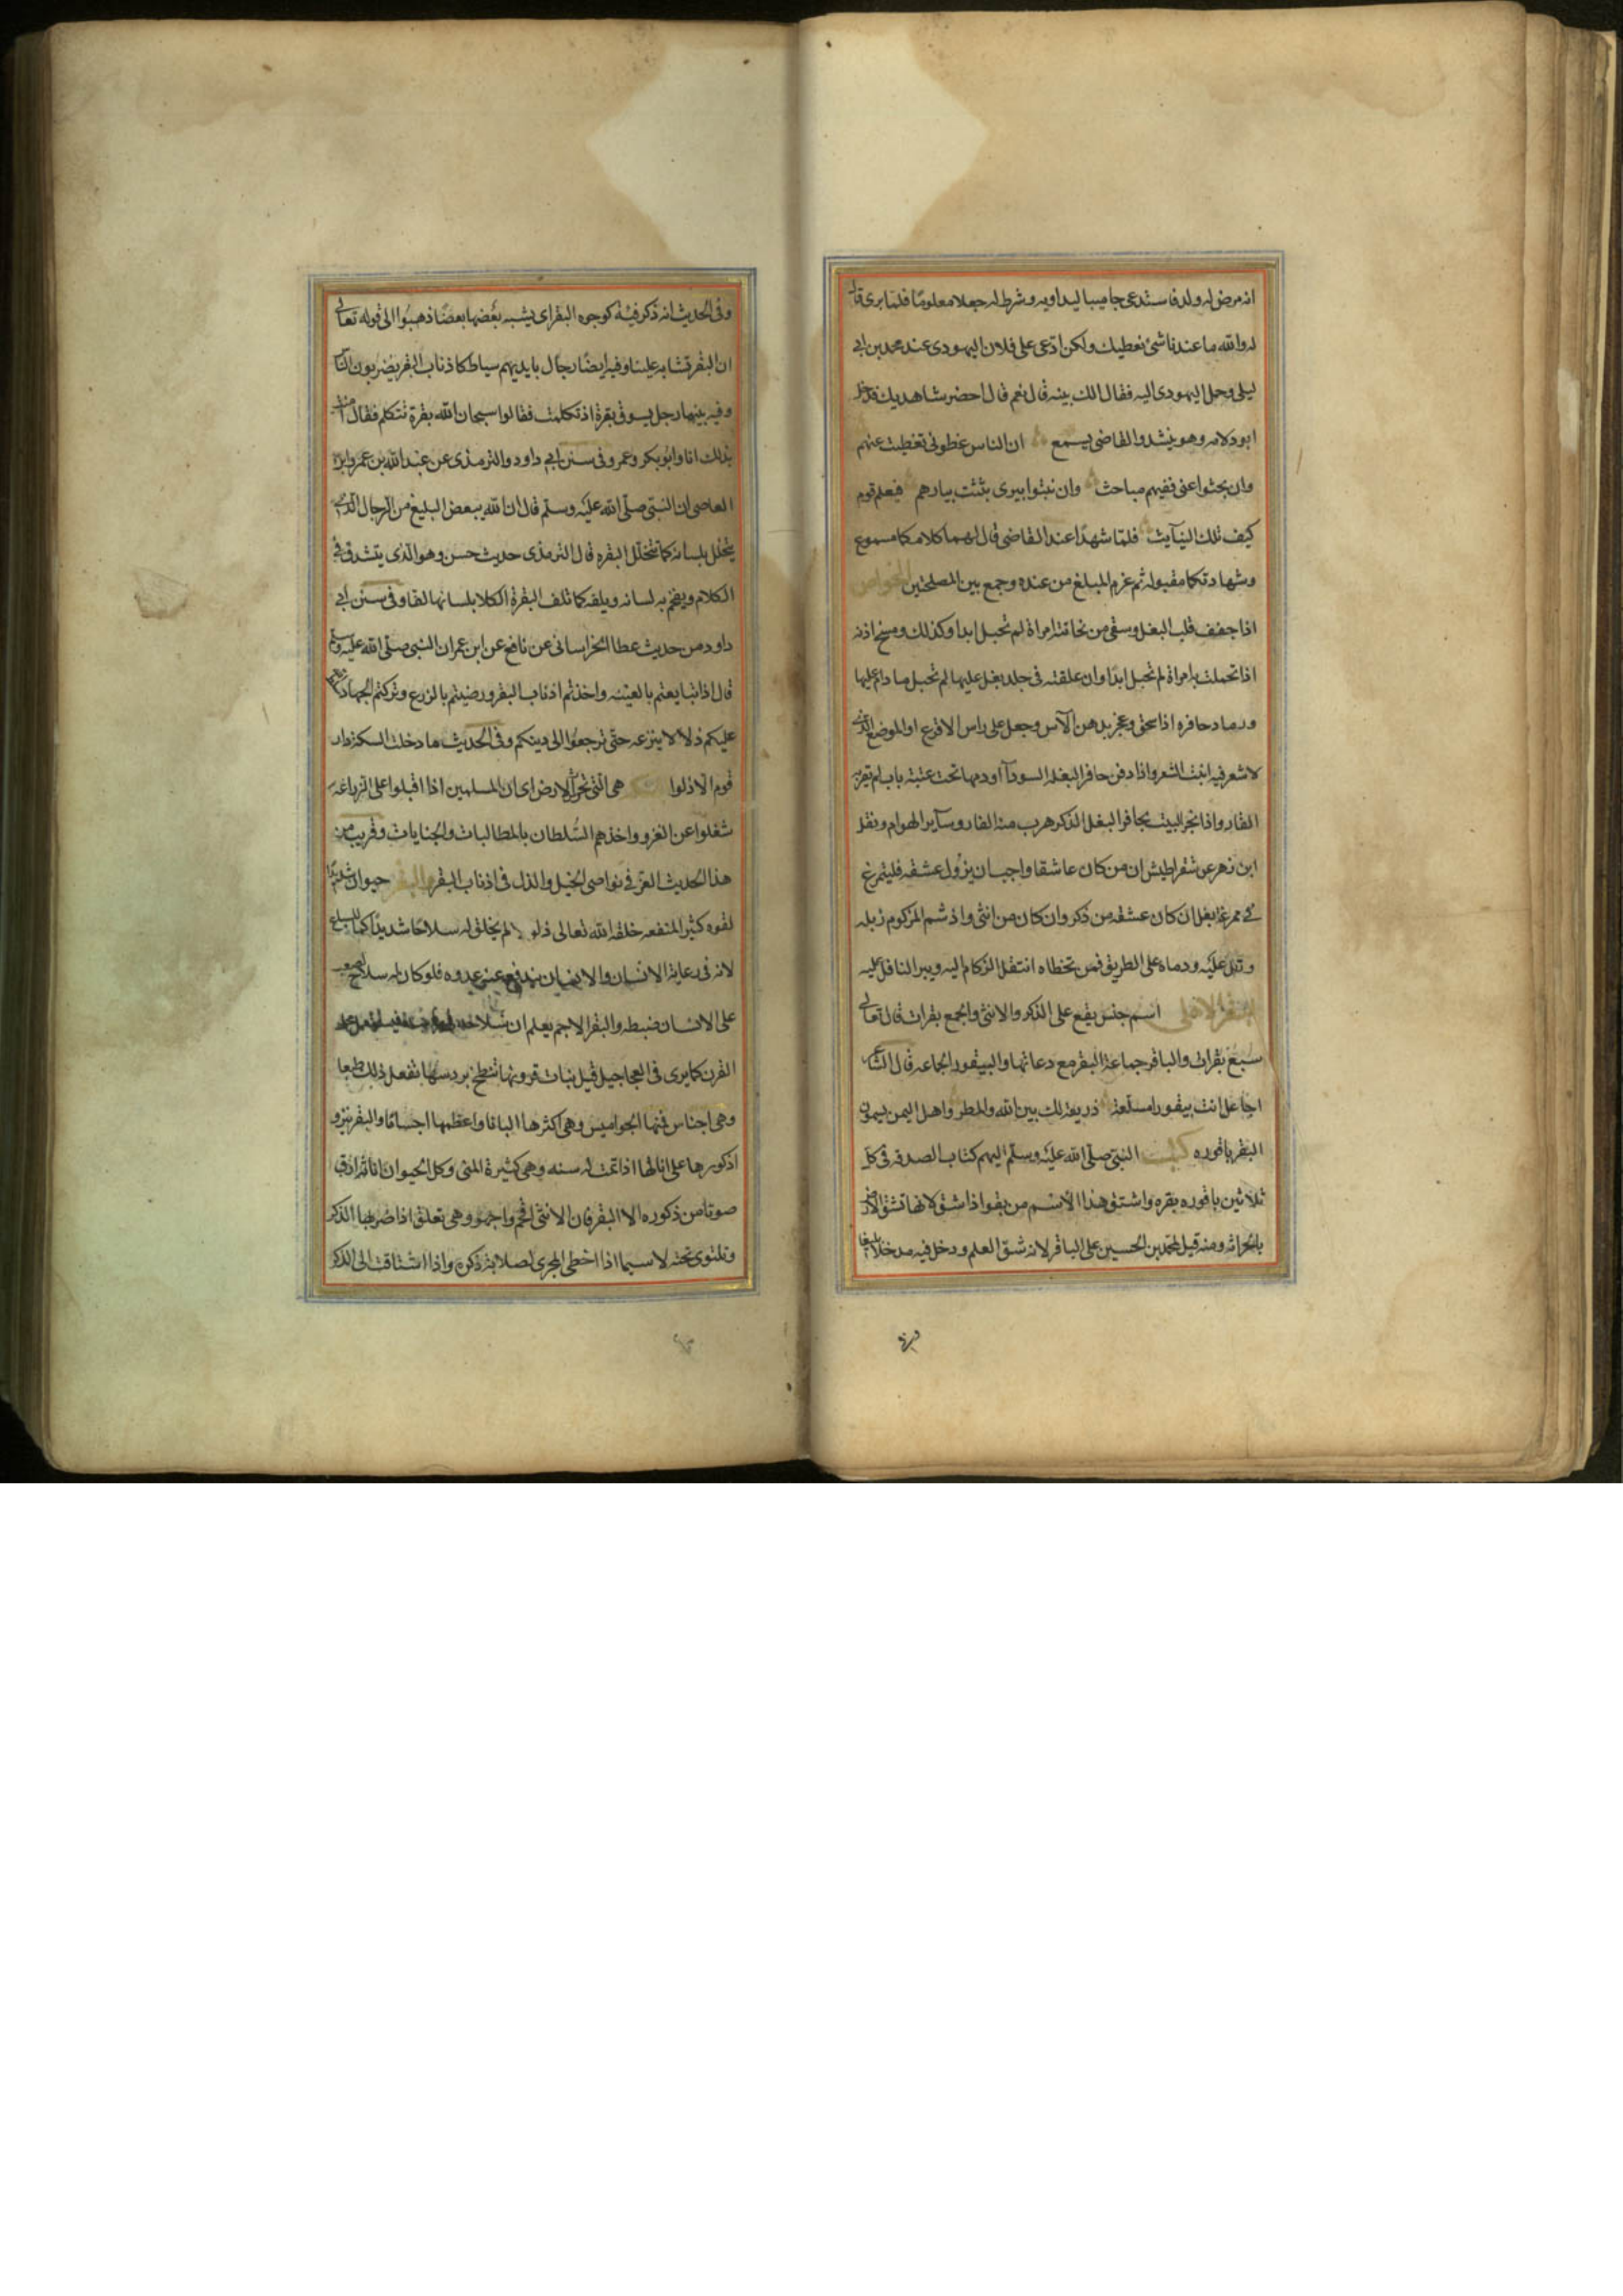 انه مرض له ولد فاستدعى طبيبا ليداويه وشرط له جعلا معلومًا فلما برى قال
له والله ما عندنا شئ نعطيك ولكن ادعى على فلان اليهودى عند محمد بن ابى
ليلى وحمل اليهودى اليه فقال الك بينه قال نعم قال احضر شاهديك فدخل
ابو دلامه وهو ينشد والقاضى يسمع ان الناس غطونى تغطيت عنهم
وان بحثوا عنى ففيهم مباحث وان نبثوا بيرى نبثت بيارهم فيعلم قوم
كيف تلك النبآيث فلمّا شهدا عند القاضى قال لهما كلامكما مسموع
وشهادتكما مقبوله ثم غرم المبلغ من عنده وجمع بين المصلحتين الخواص
اذا جفف قلب البغل وسقى من نحاتته امراة لم تحبل ابدا وكذلك وسخ اذنه
اذا تحملت به امراة لم تحبل ابدًا وان علقته فى جلد بغل عليها لم تحبل ما دام عليها
ورماد حافره اذا سحق وعجن بدهن الآس وجعل على راس الاقرع او الموضع الذى
لا شعر فيه انبت الشعر واذا دفن حافر البغله السودآ او دمها تحت عتبة باب لم يقربه
الفار واذا بخر البيت بحافر البغل الذكر هرب منه الفار وسآير الهوام ونقل
ابن زهر عن سقراطيس ان من كان عاشقا واحب ان يزول عشقه فليتمرغ
فى مرغة بغل ان كان عشقه من ذكر وان كان من انثى واذ شم المزكوم زبله
وتفل عليه ورماه على الطريق فمن تخطاه انتقل الزكام اليه ويبرا التافل عليه
البقر الاهلى اسم جنس يقع على الذكر والانثى والجمع بقرات قال تعالى
سبع بقرات والباقر جماعة البقر مع رعاتها والبيقور الجماعه قال الشاعر
اجاعل انت بيقورا مسلّعة ذريعة لك بين الله والمطر واهل اليمن يسمون
البقر باقوره كتب النبى صلّى الله عليه وسلّم اليهم كتاب الصدقه فى كل
ثلاثين باقوره بقره واشتق هذا الاسم من بقر اذا شق لانها تشق الارض
بالحراثه ومنه قيل لمحمد بن الحسين على الباقر لانه شق العلم ودخل فيه مدخلا بليغا
وفى الحديث انه ذكر فتنة كوجوه البقر اى يشبه بعضها بعضًا ذهبوا الى قوله تعالى
ان البقر تشابه علينا وفيه ايضًا رجال بايديهم سياط كاذناب البقر يضربون الناس
وفيه بينما رجل يسوق بقرة اذ تكلمت فقالوا سبحان الله بقرة تتكلم فقال امنت
بذلك انا وابو بكر وعمر وفى سنن ابى داود والترمذى عن عبد الله بن عمرو ابن
العاصى ان النبى صلّى الله عليه وسلّم قال ان الله يبغض البليغ من الرجال الذى
يتخلل بلسانه كما تتخلل البقره قال الترمذى حديث حسن وهو الذى يتشدق فى
الكلام ويفخم به لسانه ويلفه كما تلف البقرة الكلا بلسانها لفا وفى سنن ابى
داود من حديث عطا الخراسانى عن نافع عن ابن عمر ان النبى صلّى الله عليه وسلم
قال اذا تبايعتم بالعينه واخذتم اذناب البقر ورضيتم بالزرع وتركتم الجهاد
عليكم ذلا لا ينزعه حتّى ترجعوا الى دينكم وفى الحديث ما دخلت السكة دار
قوم الا ذلوا هى التى تحرث الارض اى ان المسلمين اذا اقبلوا على الزراعه
شغلوا عن الغزو واخذهم السّلطان بالمطالبات والجنايات وقريب من
هذا الحديث العز فى نواصى الخيل والذل فى اذناب البقر والبقر حيوان شديد
لقوه كثير المنفعه خلقه الله تعالى ذلولا لم يخلق له سلاحًا شديدًا كما للسباع
لانه فى رعاية الانسان والانسان يدفع عنه عدوه فلو كان له سلاح لصعب
على الانسان ضبطه والبقر الاجم يعلم ان سلاحه
القرن كما يرى فى العجاجيل قبل نبات قرونها تنطح بروسها تفعل ذلك طبعا
وهى اجناس فمنها الجواميس وهى اكثرها البانا واعظمها اجسامًا والبقر ينزو
ذكورها على اناثها اذا تمت له سنه وهى كثيرة المنى وكل الحيوان اناثه ارق
صوتا من ذكوره الا البقر فان الانثى افخم واجهر وهى تعلق اذا ضربها الذكر
وتلتوى تحته لا سيما اذا اخطى المجرى لصلابة ذكره واذا اشتاقت الى الذكر